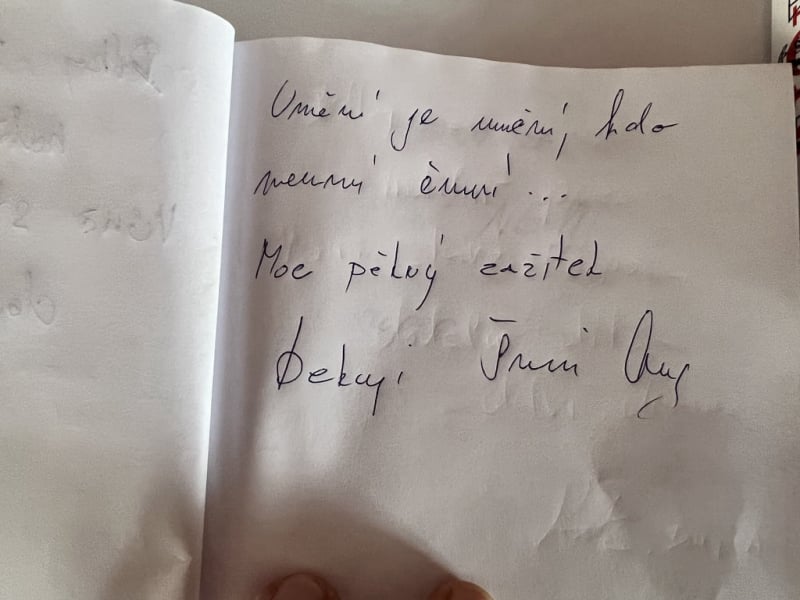 Umění je umění, kdo
neumí čumí...
Moc pěkný zážitek
Děkuji